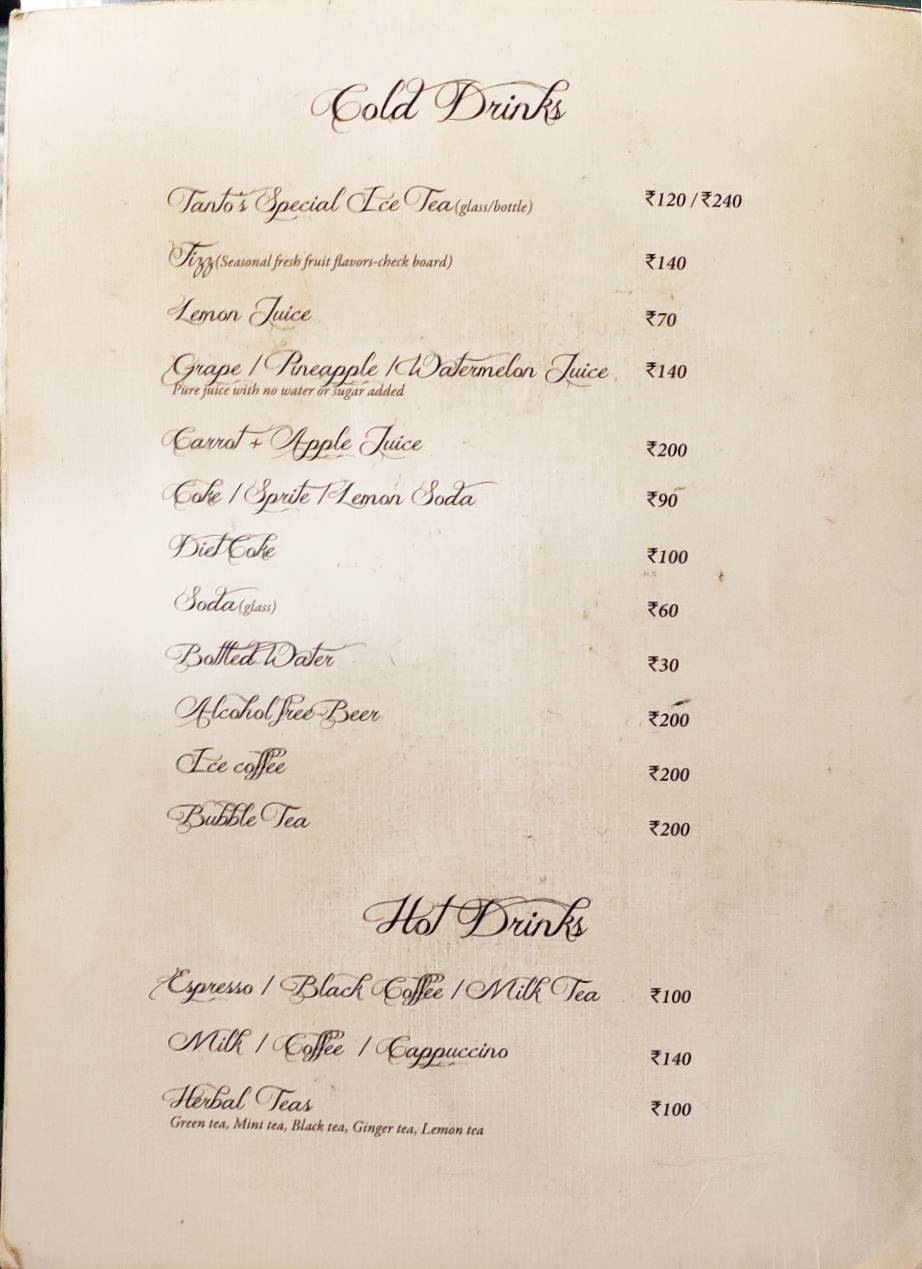 Cold Drinks
Tanto's Special Ice Tea (glass/bottle) ₹120 / ₹240
Fizz (Seasonal fresh fruit flavors-check board) ₹140
Lemon Juice ₹70
Grape / Pineapple / Watermelon Juice ₹140
Pure juice with no water or sugar added
Carrot + Apple Juice ₹200
Coke / Sprite / Lemon Soda ₹90
Diet Coke ₹100
Soda (glass) ₹60
Bottled Water ₹30
Alcohol free Beer ₹200
Ice coffee ₹200
Bubble Tea ₹200
Hot Drinks
Espresso / Black Coffee / Milk Tea ₹100
Milk / Coffee / Cappuccino ₹140
Herbal Teas ₹100
Green tea, Mint tea, Black tea, Ginger tea, Lemon tea